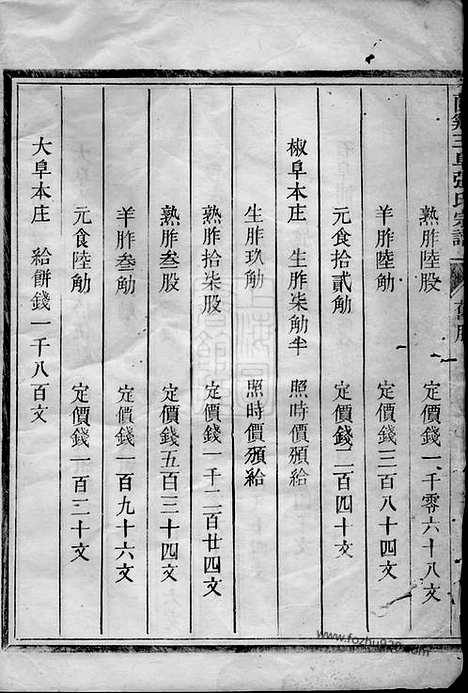 三阜張氏宗譜
熟胙陸股 定價錢一千零六十八文
羊胙陸觔 定價錢三百八十四文
元食拾貳觔 定價錢二百四十文
椒阜本庄 生胙柒觔半 照時價頒給
生胙玖觔 照時價頒給
熟胙拾柒股 定價錢一千二百廿四文
熟胙叁股 定價錢五百三十四文
羊胙叁觔 定價錢一百九十六文
元食陸觔 定價錢一百二十文
大阜本庄 給餅錢一千八百文
www.fozhu920.com